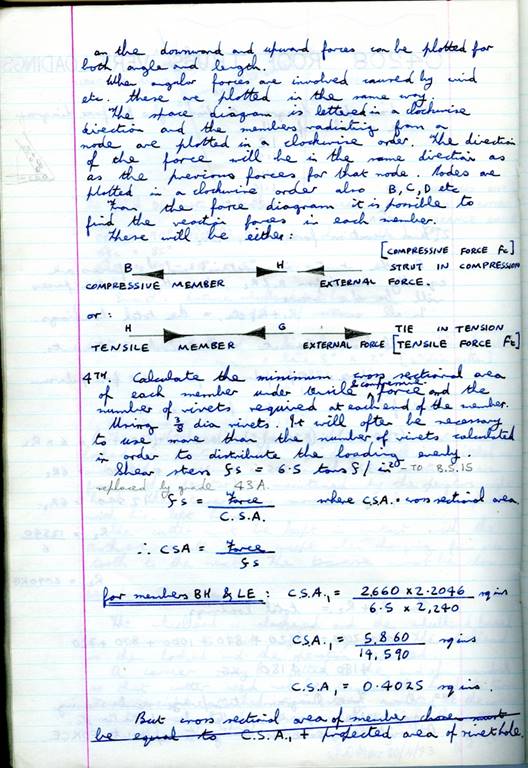 on the downward and upward forces can be plotted for
both angle and length.
When angular forces are involved caused by wind
etc. these are plotted in the same way.
The space diagram is lettered in a clockwise
direction and the members radiating from a
node are plotted in a clockwise order. The direction
of the force will be in the same direction as
as the previous forces for that node. Nodes are
plotted in a clockwise order also B, C, D etc
From the force diagram it is possible to
find the reaction forces in each member.
These will be either:
[COMPRESSIVE FORCE Fc]
B H STRUT IN COMPRESSION
COMPRESSIVE MEMBER EXTERNAL FORCE.
or:
H G TIE IN TENSION
TENSILE MEMBER EXTERNAL FORCE [TENSILE FORCE Ft]
4TH. Calculate the minimum cross sectional area
of each member under tensile & compressive force and the
number of rivets required at each end of the member.
Using 3/8 dia rivets. It will often be necessary
to use more than the number of rivets calculated
in order to distribute the loading evenly.
Shear stress fs = 6.5 tons f / in² - TO B.S.15
replaced by grade 43A.
fs = Force / C.S.A. where CSA = cross sectional area
∴ CSA = Force / fs
for members BH & LE : C.S.A.₁ = 2,660 x 2.2046 / 6.5 x 2,240 sq ins
C.S.A.₁ = 5,860 / 14,590 sq ins
C.S.A₁ = 0.4025 sq ins.
But cross sectional area of member chosen must
be equal to C.S.A.₁ + projected area of rivet hole.